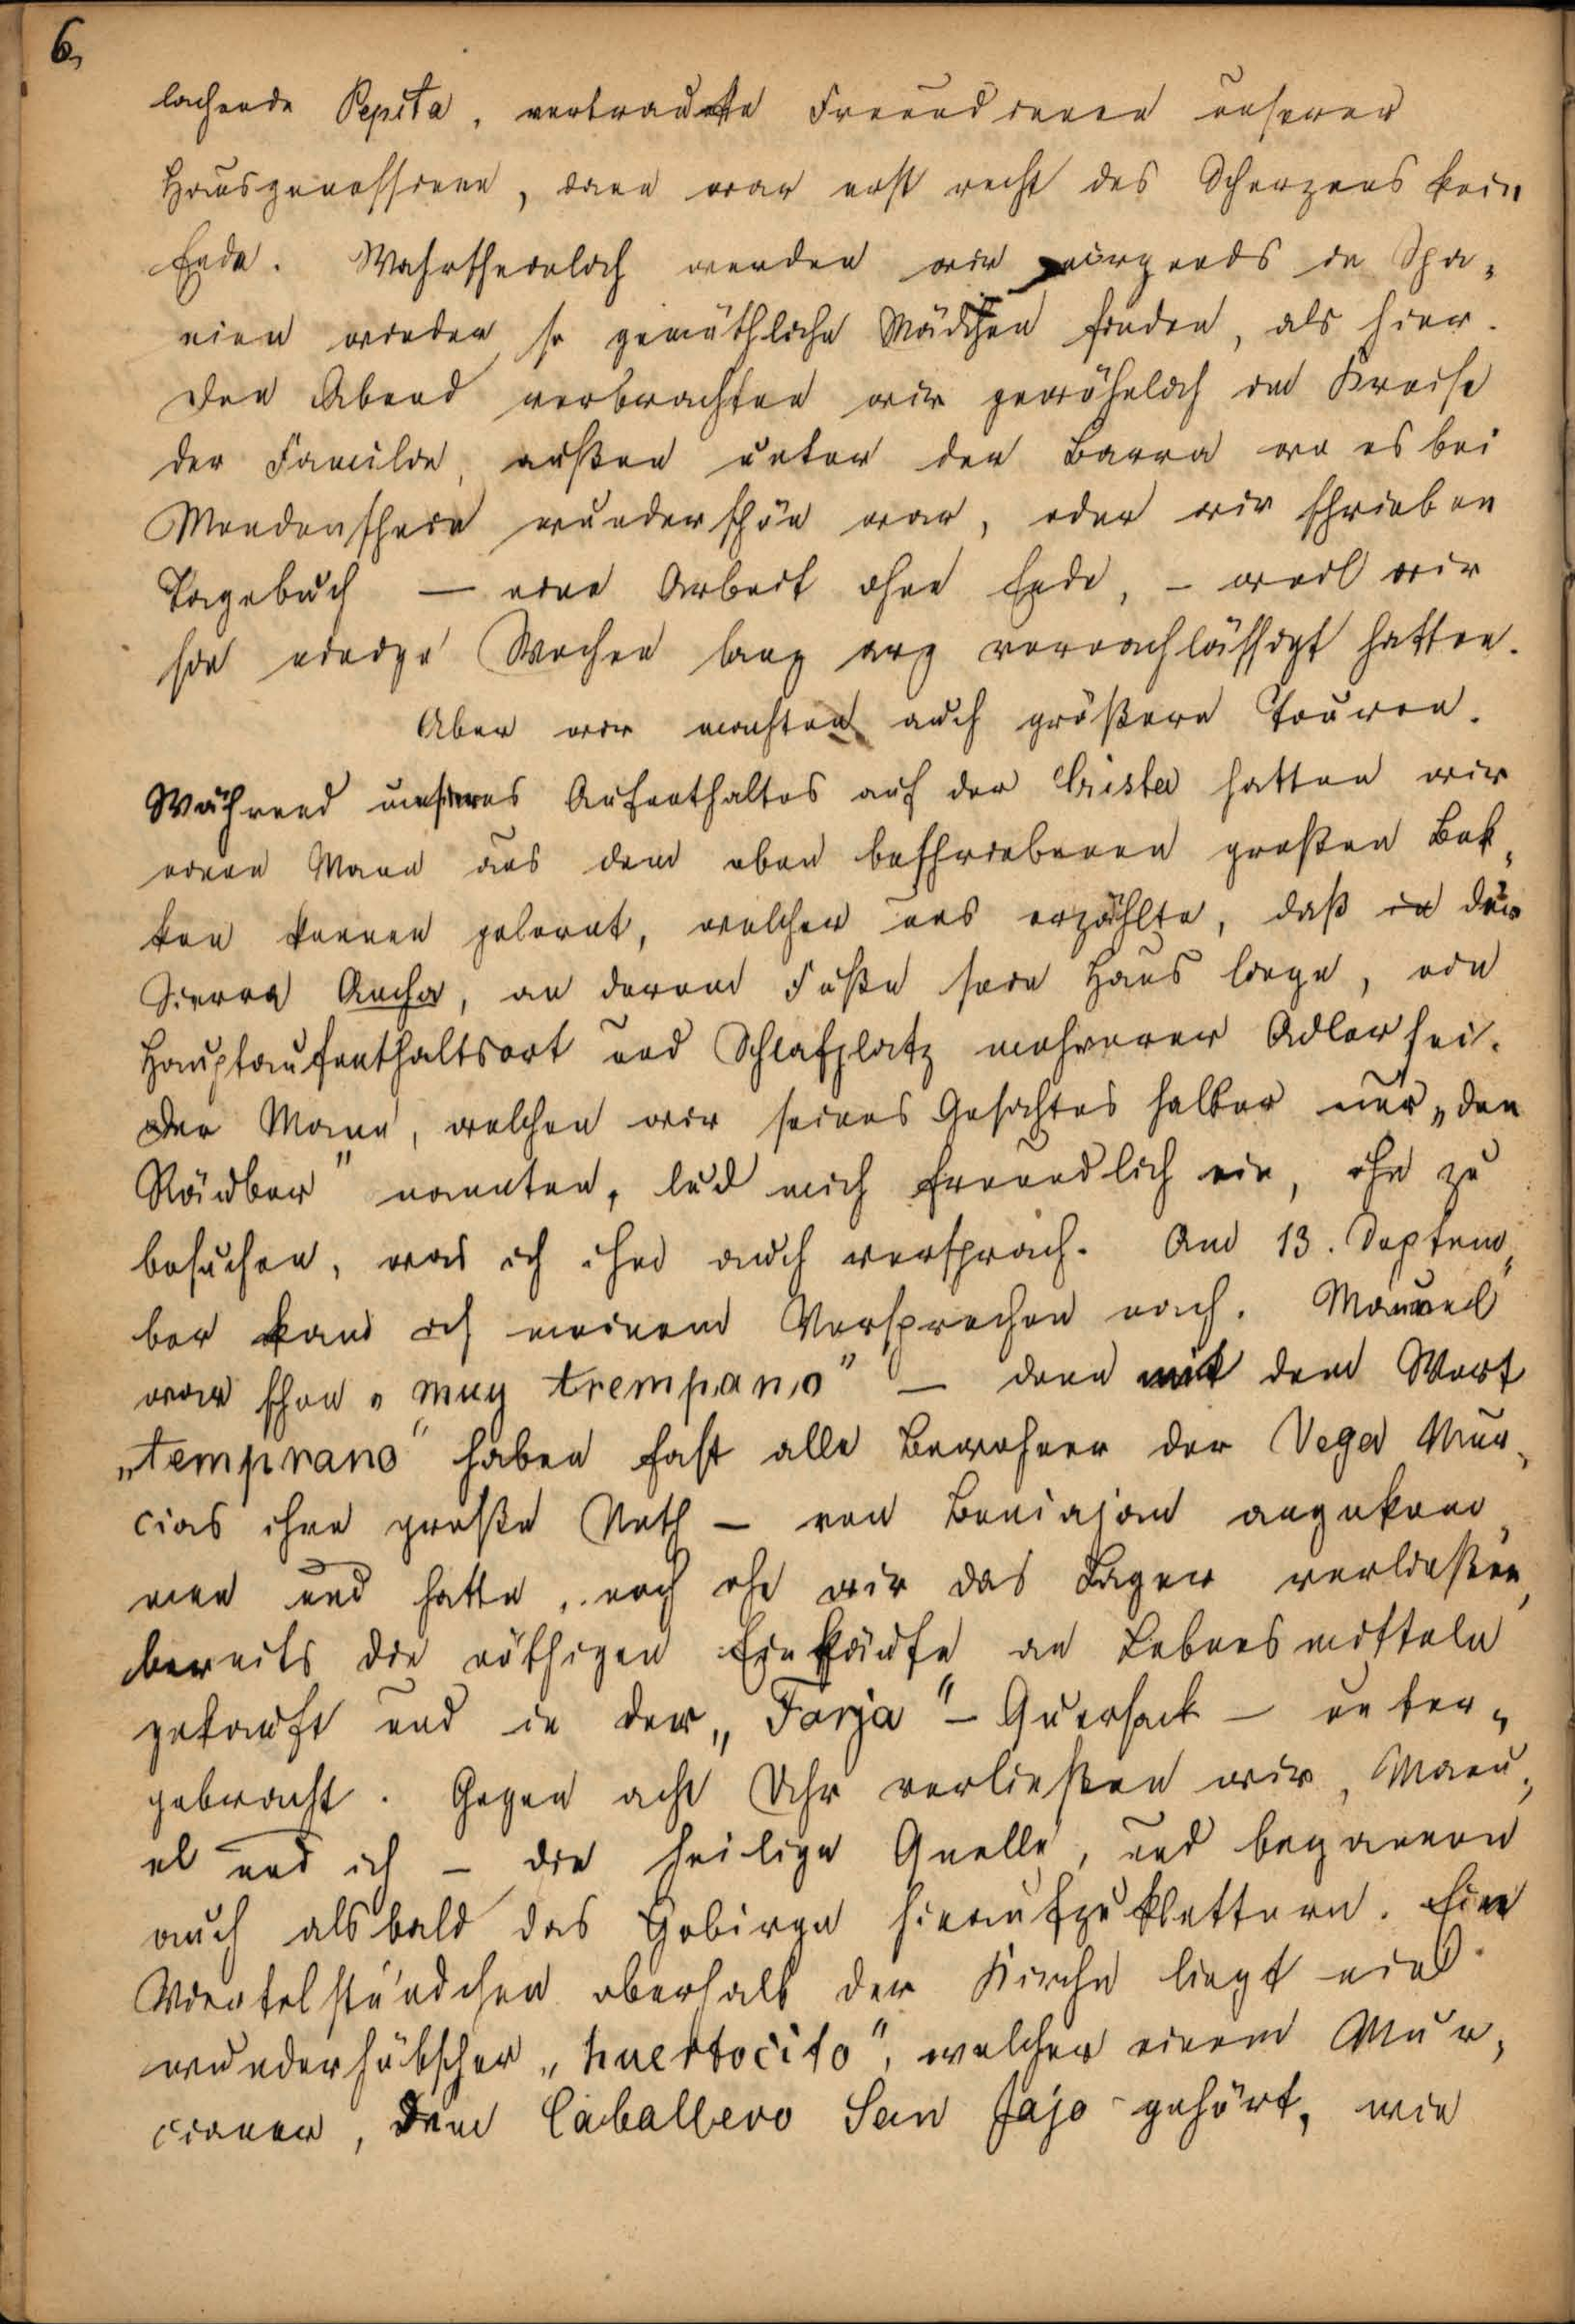 6,
lachende Pepita, vertraute Freundinnen unserer
Hausgenossinnen, dann war erst recht des Scherzens kein
Ende. Wahrscheinlich werden wir nirgends in Spa„
nien wieder so gemüthliche Mädchen finden, als hier.
Den Abend verbrachten wir gewöhnlich im Kreise
der Familie, außen unter der Barra wo es bei
Mondenschein wunderschön war, oder wir schrieben
Tagebuch — eine Arbeit ohne Ende, – weil wir
sie einige Wochen lang arg vernachlässigt hatten.
Aber wir machten auch größere Touren.
Während unseres Aufenthaltes auf der Crista hatten wir
einen Mann aus dem oben beschriebenen großen Bek„
ken kennen gelernt, welcher uns erzählte, daß in der
Sierra Ancha, an derem Fuße sein Haus liege, ein
Hauptaufenthaltsort und Schlafplatz mehrerer Adler sei.
Der Mann, welchen wir seines Gesichtes halber nur „den
Räuber" nannten, lud mich freundlich ein, ihn zu
besuchen, was ich ihm auch versprach. Am 13. Septem„
ber kam ich meinem Versprechen nach. Manuel
war schon „muy trempano" — denn mit dem Wort
„temprano" haben fast alle Bewohner der Vega Mur„
cias ihre große Noth — von Beniajam angekom„
men und hatte, noch ehe wir das Lager verließen,
bereits die nöthigen Einkäufe an Lebensmitteln
gekauft und in der „Farja" – Quersack – unter„
gebracht. Gegen acht Uhr verließen wir, Manu„
el und ich – die heilige Quelle, und begannen
auch alsbald das Gebirge hinaufzuklettern. Ein
Viertelstündchen oberhalb der Kirche liegt ein
wunderhübscher „huertocito", welcher einem Mur„
cianer, dem Caballero San Jajo gehört, wie